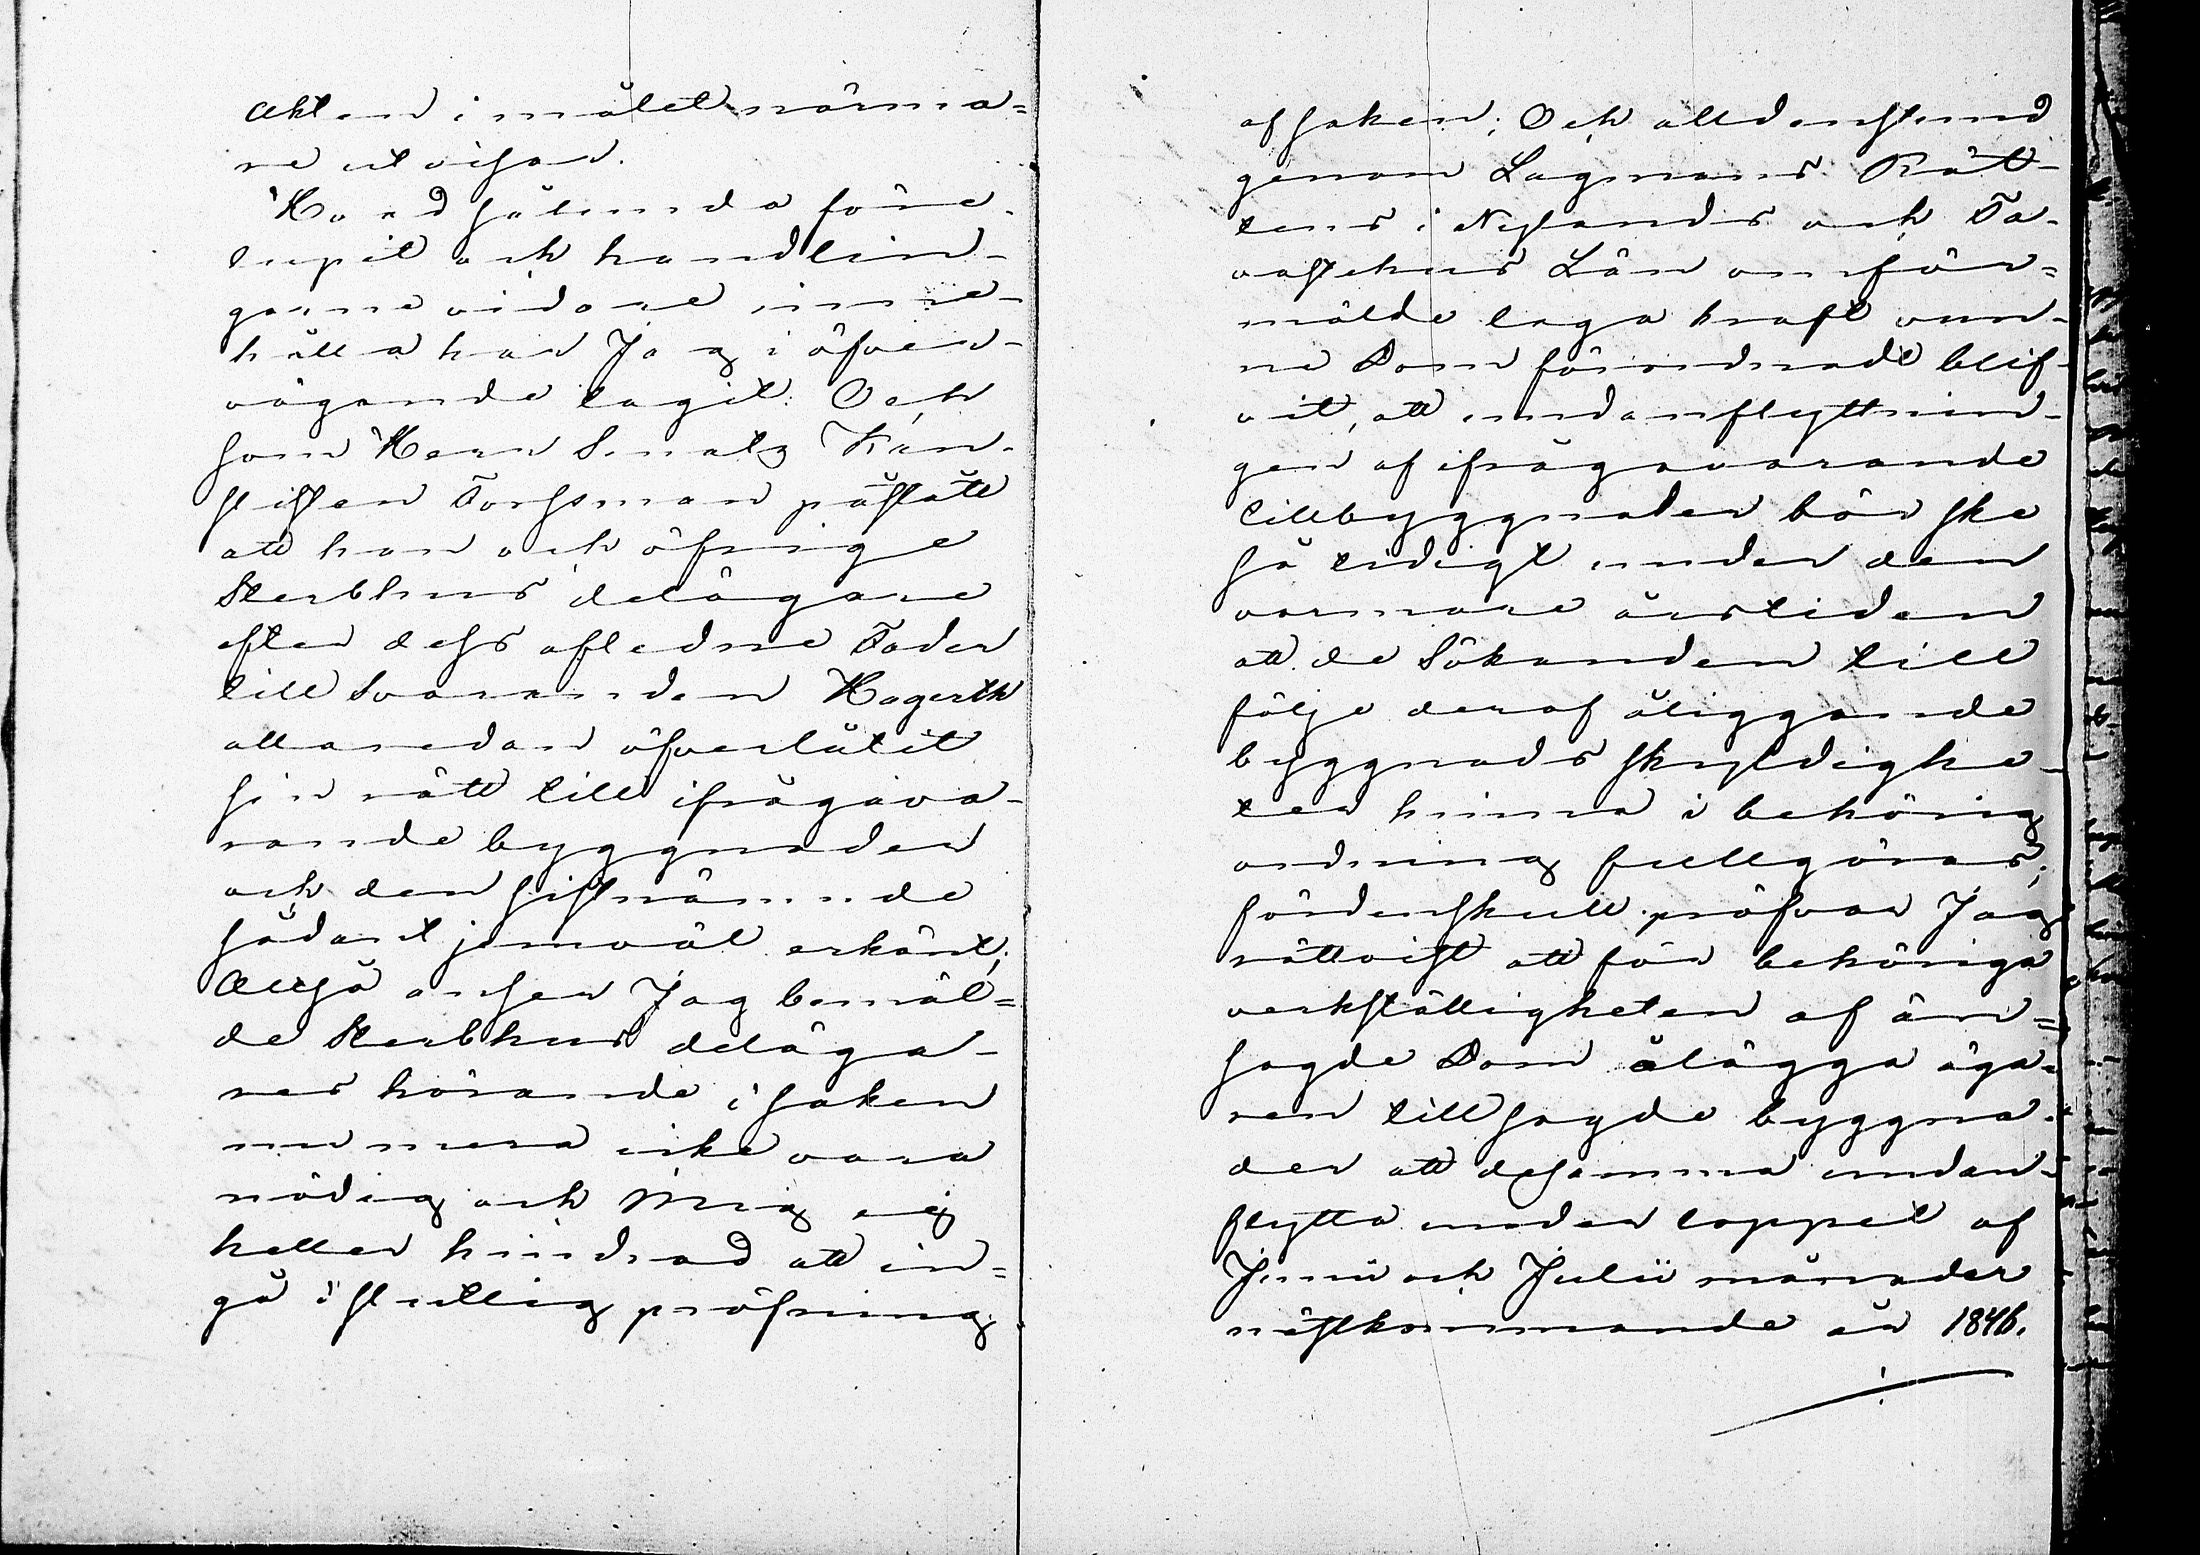 Akten i målet närma=
re utvisar.
Hvad sålunda före-
lupit och handlin-
garne vidare inne-
hålla har Jag i öfver-
vägande tagit: Och
som Herr Senats Kan-
slisten Forssman påstått
att han och öfrige
Sterbhus delägare
efter dess aflidne Fader
till Svaranden Hagerth
allaredan öfverlåtit
sin rätt till ifrågava-
rande byggnader
och den sistnämnde
sådant jemväl erkänt;
Altså anser Jag bemäl=
de Sterbhus deläga-
res hörande i saken
nu mera icke vara
nödig och Mig ej
heller hindrad att in=
gå i slutlig pröfning
af saken; Och alldenstund
genom Lagmans Rät-
tens i Nylands och Ta-
vastehus Län omför=
mälde laga kraft vun-
ne Dom förordnadt blif-
vit, att undanflyttnin-
gen af ifrågavarande
tillbyggnader bör ske
så tidigt under den
varmare årstiden
att de Sökanden till
följe deraf åliggande
byggnads skyldighe-
ter hinna i behörig
ordning fullgöras;
fördenskull pröfvar Jag
rättvist att för behöriga
verkställigheten af än=
sagde Dom ålägga äga-
ren till sagde byggna-
der att desamma undan-
flytta under loppet af
Junii och Julii månader
nästkommande år 1846.